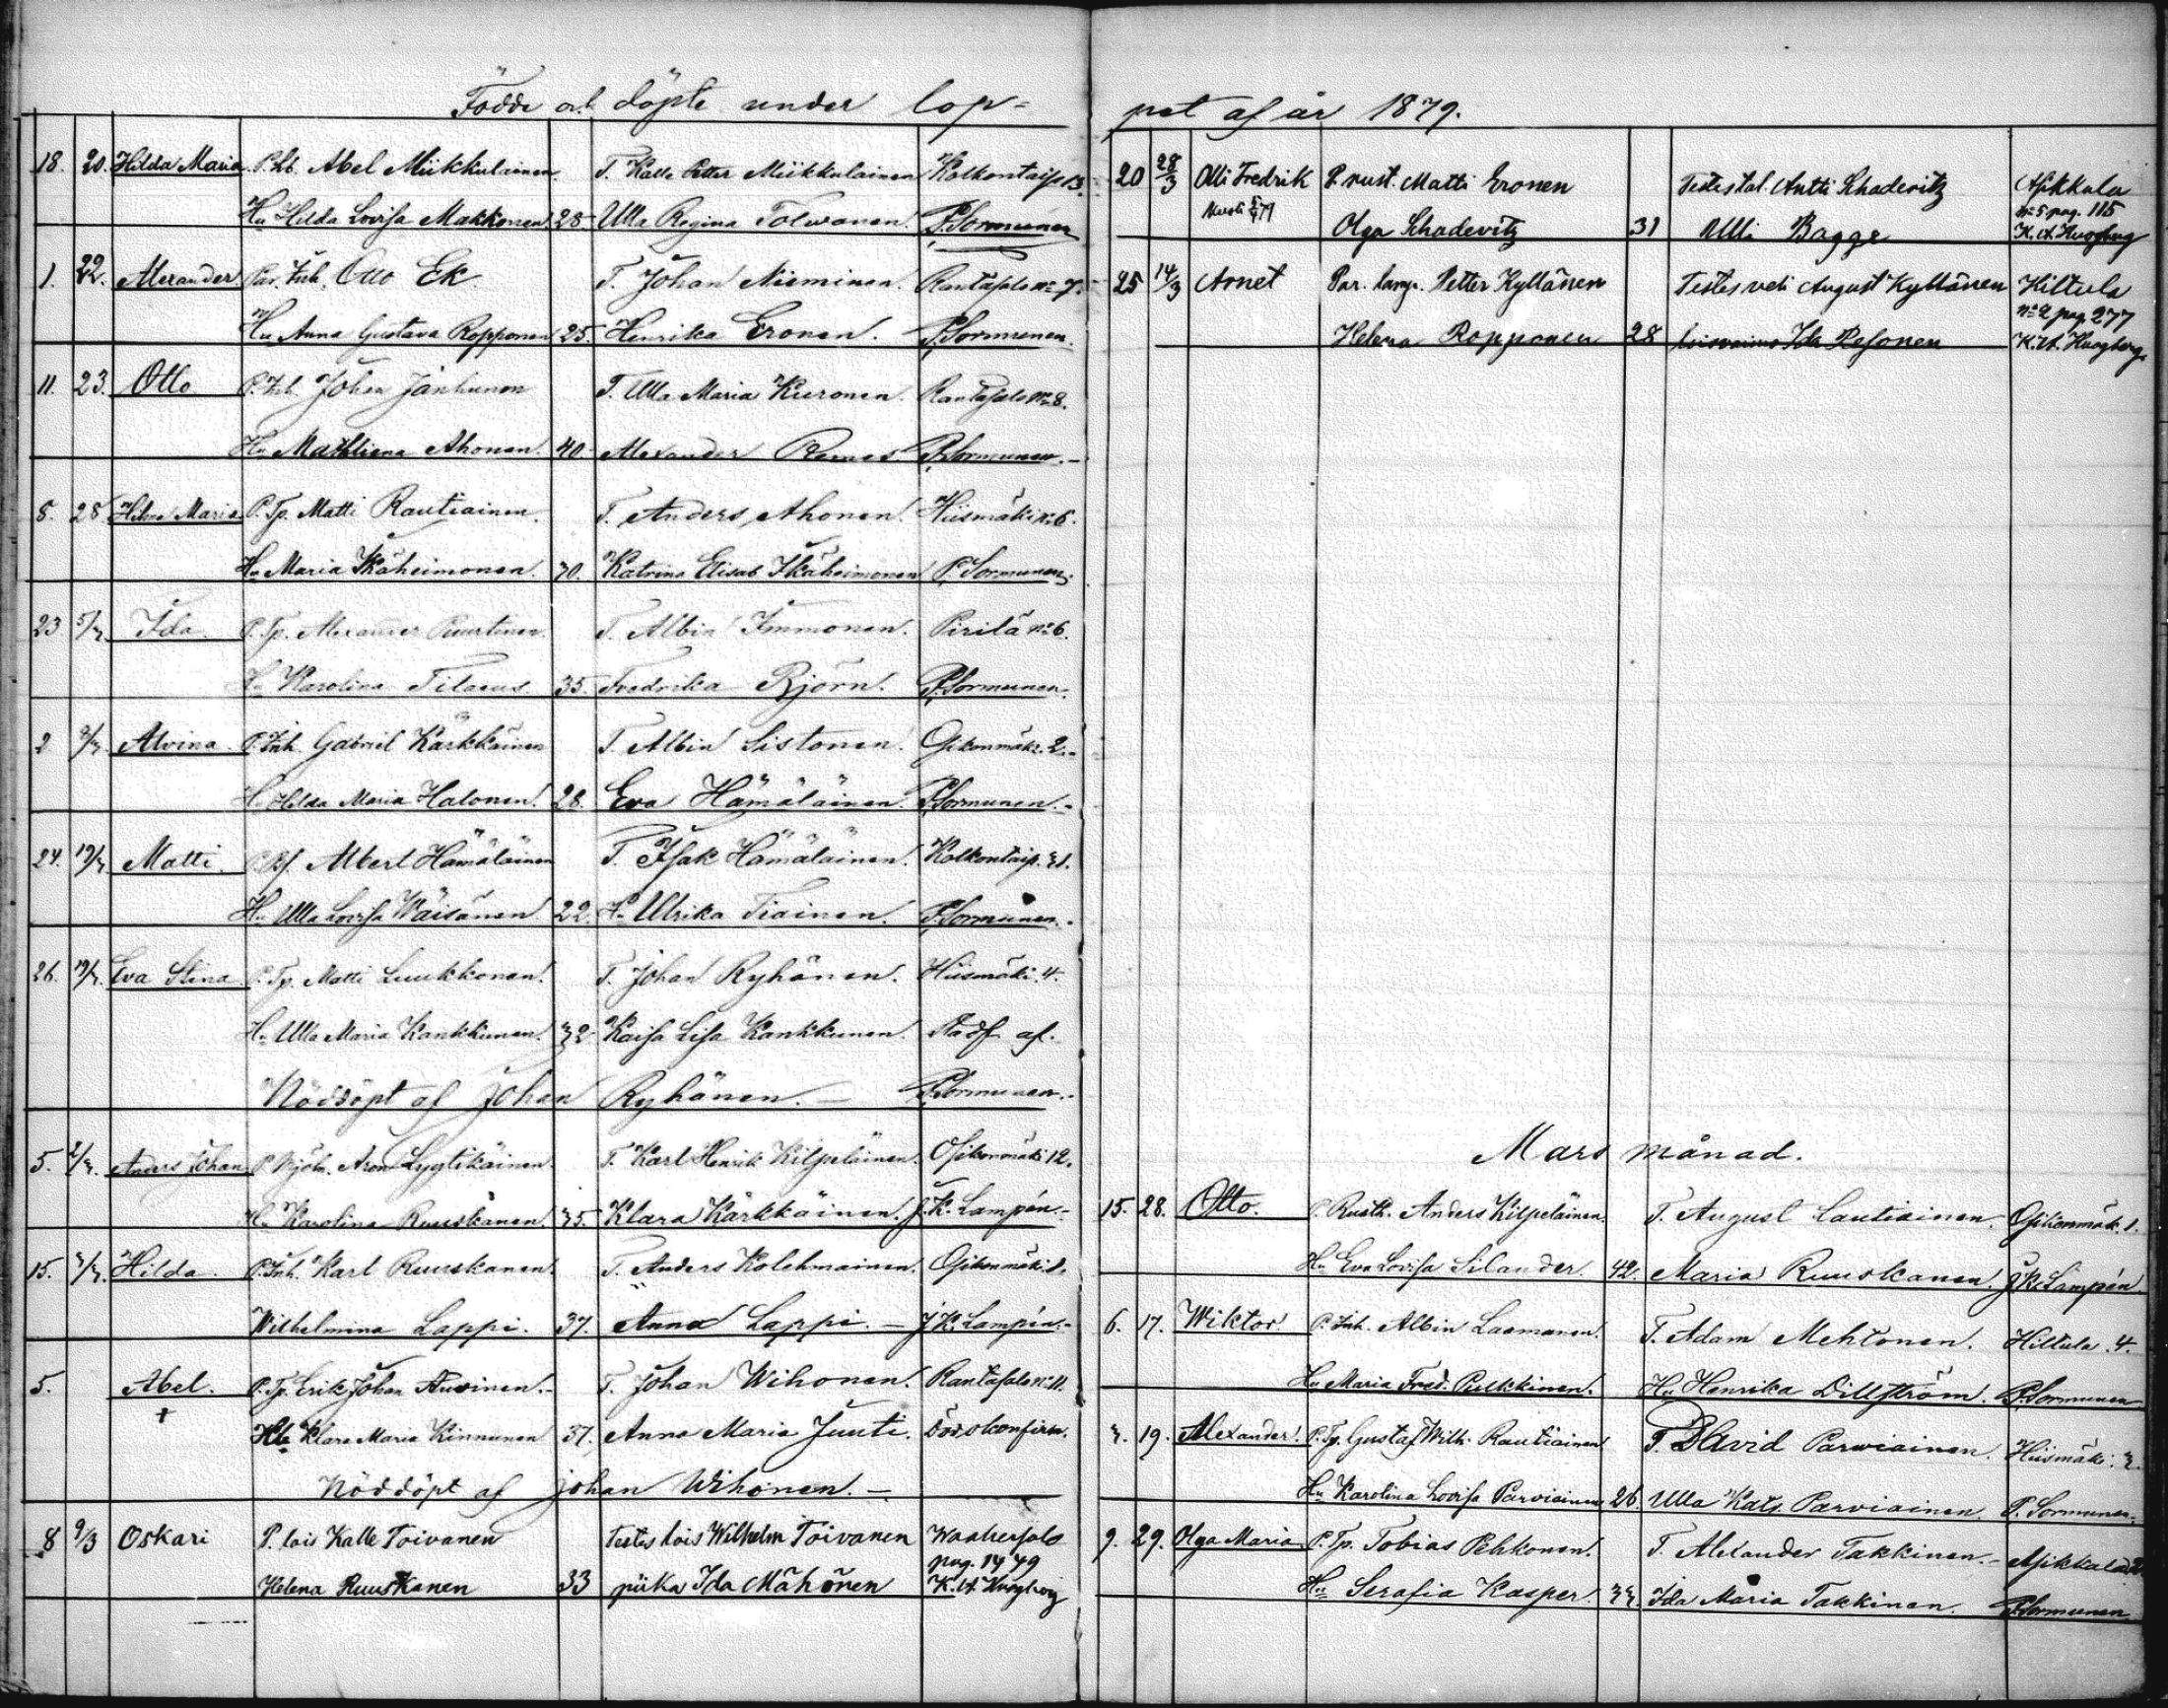 Födde och döpte under lop-
18. 20. Hilda Maria P. Lb. Abel Miikkulainen. T. Kalle Petter Miikkulainen Kolkontaip. 13.
Hu Hilda Lovisa Makkonen 28 Ulla Regina Tolwanen. P. Sormunen
1. 22. Alexander Par. Inh. Otto Ek. T. Johan Nieminen. Rantasalo No 7.
Hu Anna Gustava Ropponen 25. Henrika Eronen. P. Sormunen.
11. 23. Otto P. Inh. Johan Janhunen T. Ulla Maria Kuronen. Rantasalo No 8.
Hu Mathliena Ahonen. 40. Alexander Remes P. Sormunen.
8. 28 Hilma Maria P. Tp. Matti Rautiainen. T. Anders Ahonen. Hiismäki No 6.
Hu Maria Ikäheimonen. 30. Katrina Elisab Ikäheimonen P. Sormunen.
23 5/3 Ida P. Tp. Alexander Puurtinen. T. Albin Immonen. Pirilä No 6.
Hu Karolina Tilaeus 35. Fredrika Björn. P. Sormunen.
2 Alvina. P. Inh. Gabriel Karkkäinen T. Albin Sistonen. Osikonmäki. 2.
H. Hilda Maria Halonen. 28. Eva Hämäläinen. P. Sormunen.
24. 19/3 Matti. Albert Hämäläinen T. Isak Hämäläinen. Kolkontaip. 31.
Hu Ulla Lovisa Wäisänen 22. Hu Ulrika Tiainen. P. Sormunen.
26. 19/3. Eva Stina P. Tp. Matti Luukkonen. T. Johan Ryhänen. Hiismäki. 4.
Hu Ulla Maria Kankkunen. 32 Kaisa Lisa Kankkunen. Stadf. af.
Nöddöpt af Johan Ryhänen. — P. Sormunen.
5. 2/3. Anders Johan Aron Lyytikäinen. T. Karl Henrik Kilpeläinen. Osikonmäki 12.
Hu Karolina Ruuskanen. 35. Klara Karkkäinen. J. K. Lampén.
15. Hilda. P. Inh. Karl Ruuskanen. T. Anders Kolehmainen. Osikonmäki
Wilhelmina Lappi. 37. Anna Lappi. — J. K. Lampén.
5. Abel. P. Tp. Erik Johan Auvinen. T. Johan Wihonen. Rantasalo No 11.
+ Klara Maria Kinnunen 37. Anna Maria Juuti.
Nöddöpt af Johan Wihonen. —
8 9/3 Oskari P. lois Kalle Toivanen Testes lois Wilhelm Toivanen Waahersalo
pag. 1449
Helena Ruuskanen 33 piika Ida Mähönen K. A. Hougberg
pet af år 1879.
20 28/3 Olli Fredrik P. rust. Matti Eronen Testes tal. Antti Schadevitz Ahkkala
No 5 pag. 115
Olga Schadevitz 31 Ulli Bagge K. A. Hougberg
25 14/3 Arnet Par. lamp. Petter Kyllönen Testes veli August Kyllönen Hiltula
No 2 pag. 277
Helena Ropponen 28 loisvaimo Ida Pesonen K. A. Hougberg.
Mars månad.
15. 28. Otto. P. Rusth. Anders Kilpeläinen. T. August Lautiainen. Osikonmäk. 1.
Hu Eva Lovisa Silander. 42. Maria Ruuskanen. J. K. Lampén.
6. 17. Wiktor. P. Inh. Albin Laamanen. T. Adam Mehtonen. Hiltula. 4.
Hu Maria Fred. Pulkkinen. Hu Henrika Dillström. P. Sormunen
3. 19. Alexander. P. Tp. Gustaf Wilh. Rautiainen T. David Parwiainen. Hiismäki. 3.
Hu Karolina Lovisa Parviainen 26. Ulla Kats. Parviainen. P. Sormunen.
9. 29. Olga Maria P. Tp. Tobias Pehkonen. T. Alexander Takkinen.
Hu Serafia Kasper. 33. Ida Maria Takkinen. P. Sormunen